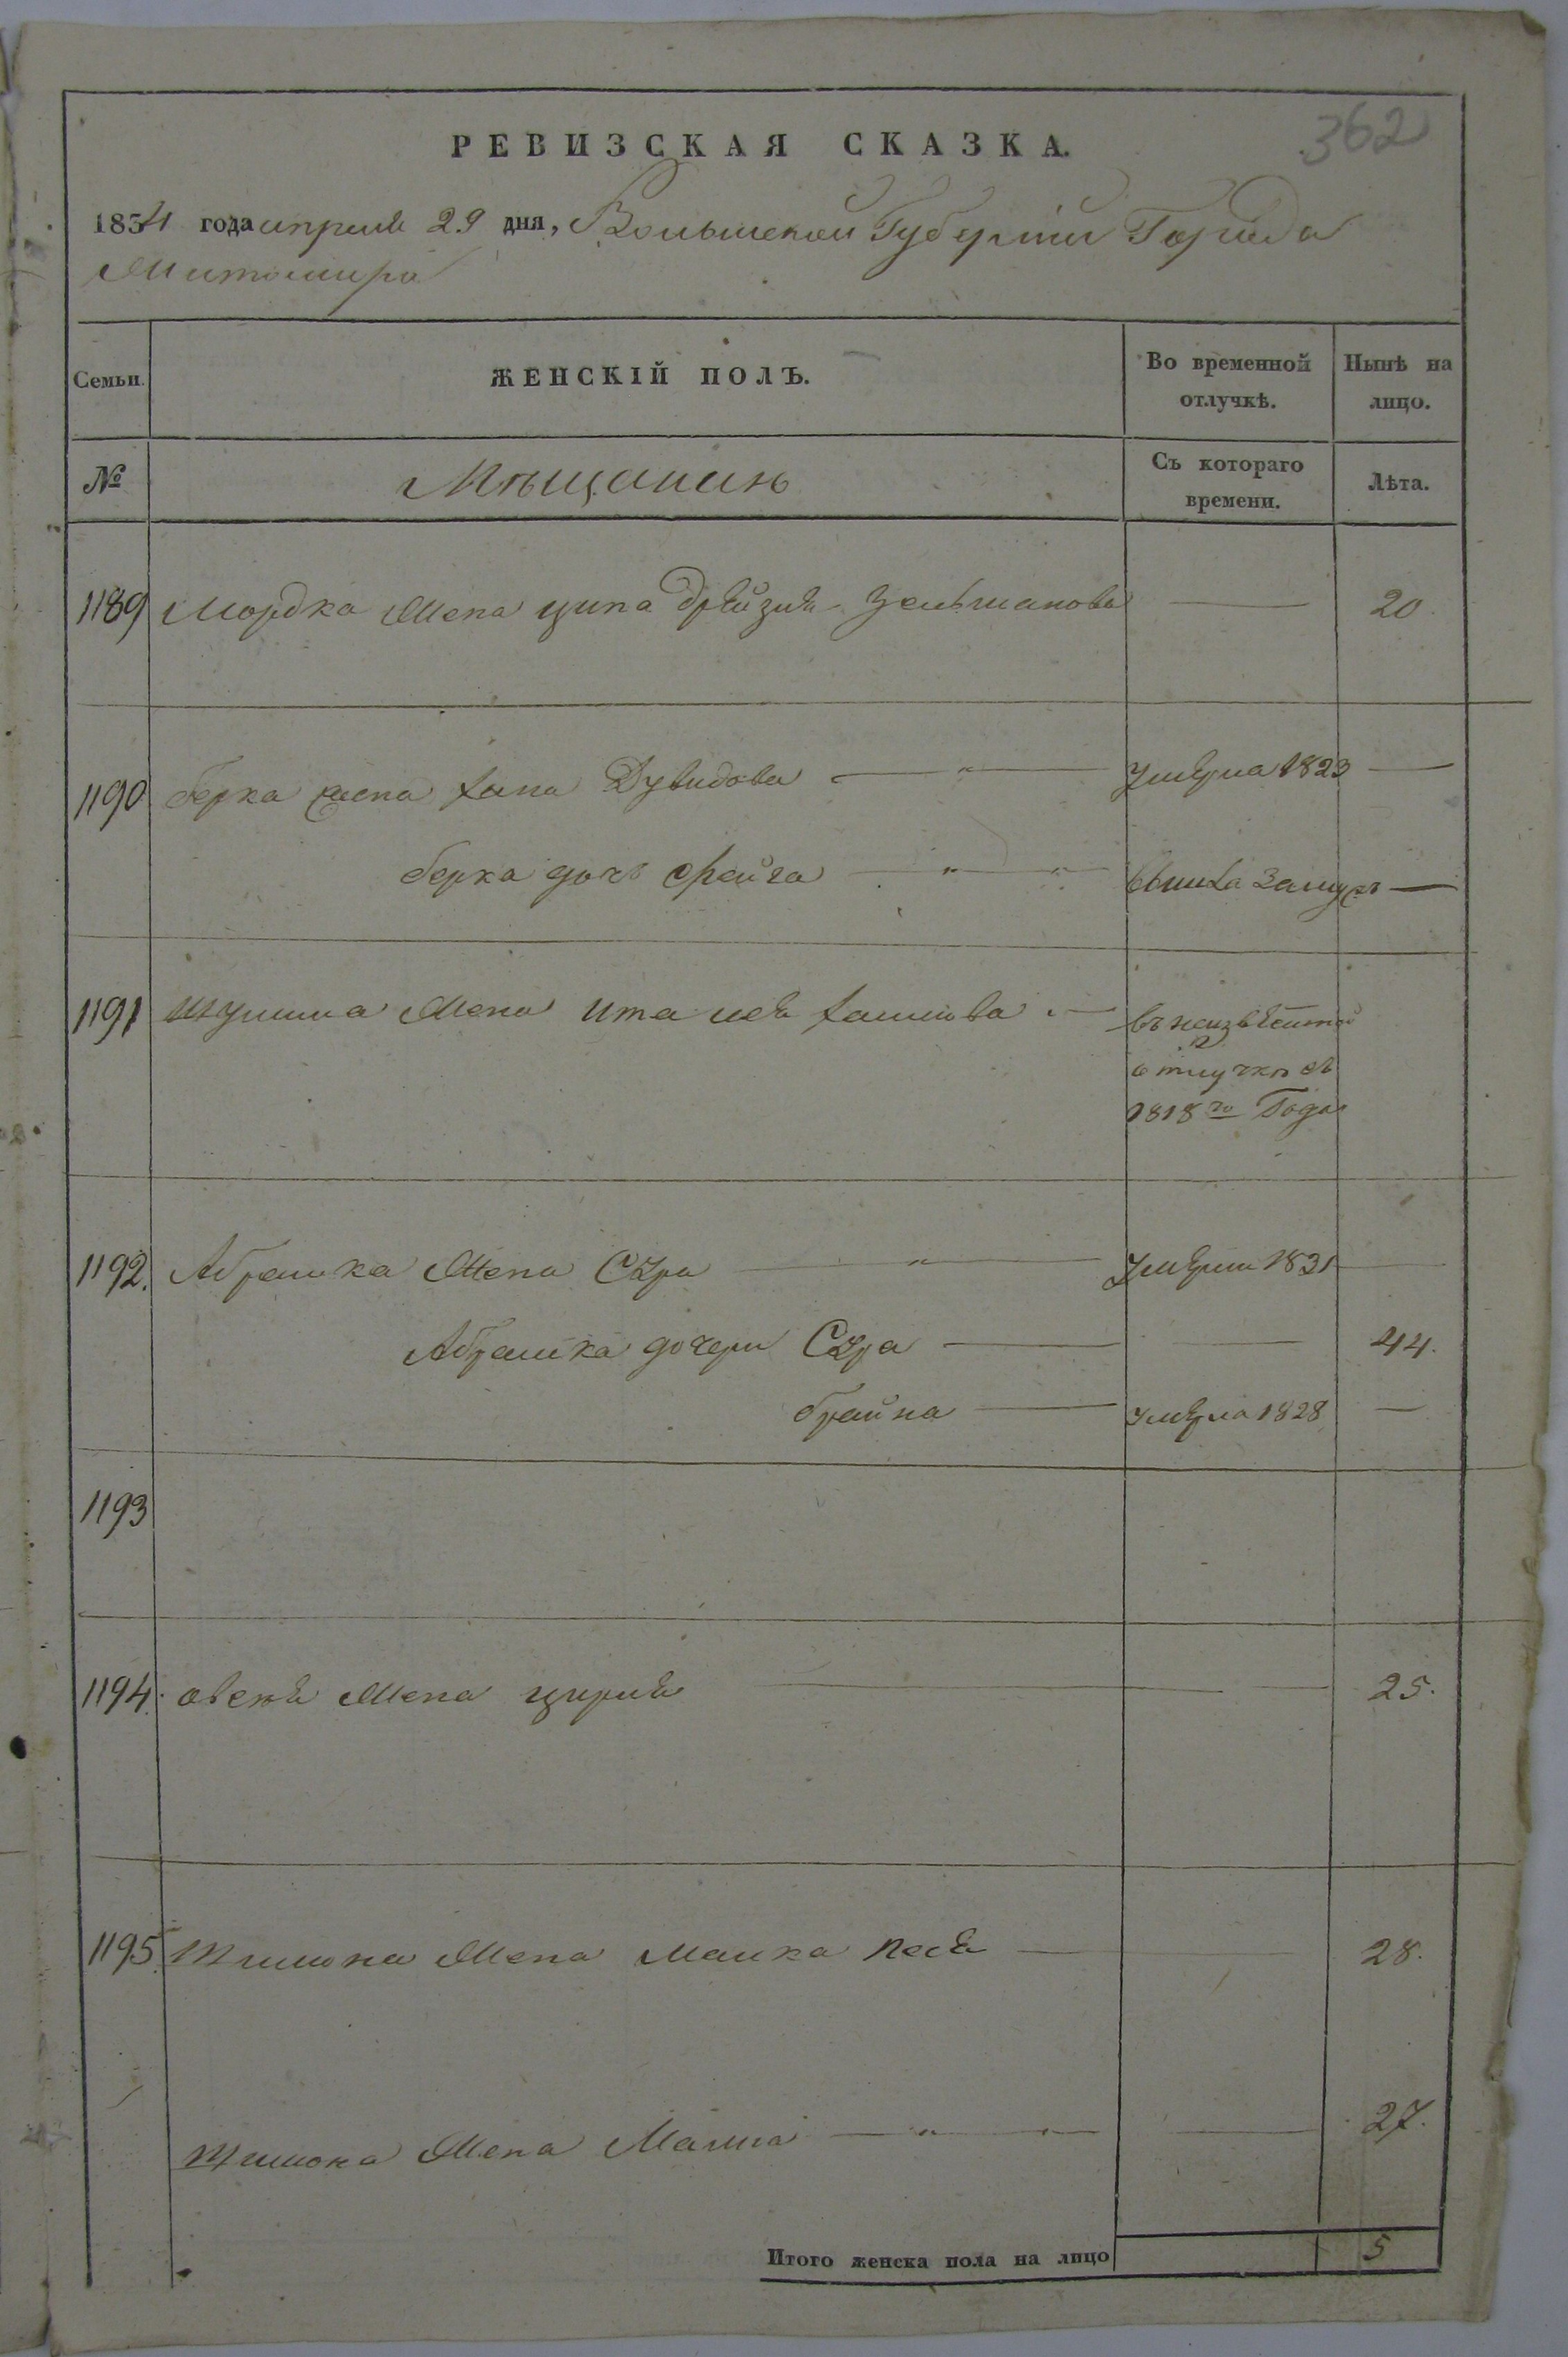 362
РЕВИЗСКАЯ СКАЗКА.
1834 года апреля 29 дня, Волынской Губернiи Города
Житомира
Семьи. ЖЕНСКIЙ ПОЛЪ. Во временной отлучкѣ. Нынѣ на лицо.
№ Мѣщанинъ Съ котораго времени. Лѣта.
1189 Мордка жена ципа дрейзя Зельманова — 20
1190 берка жена хана Дувидова — умерла 1823 —
берка дочь фейга — вышла замужъ —
1191 жена ита лея — въ неизвестной
отлучке съ
1818го Года
1192. Абрашка жена Сура — умерла 1831 —
Абрашка дочери Сура — — 44.
брайна — умерла 1828 —
1193
1194. жена цирля — — 25.
1195. Шлиома жена малка песя — — 28.
жена Малия — — 27.
Итого женска пола на лицо 5